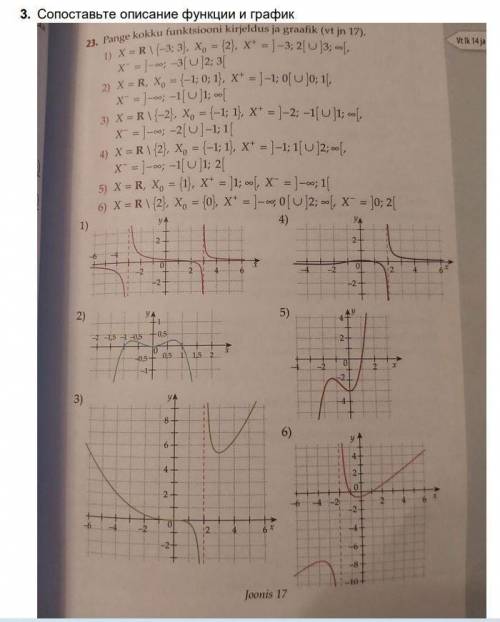 3. Сопоставьте описание функции и график
23. Pange kokku funktsiooni kirjeldus ja graafik (vt jn 17).
Vt lk 14 ja
1) X = R \ {−3; 3}, X₀ = {2}, X⁺ = ]−3; 2[ ∪ ]3; ∞[,
X⁻ = ]−∞; −3[ ∪ ]2; 3[
2) X = R, X₀ = {−1; 0; 1}, X⁺ = ]−1; 0[ ∪ ]0; 1[,
X⁻ = ]−∞; −1[ ∪ ]1; ∞[
3) X = R \ {−2}, X₀ = {−1; 1}, X⁺ = ]−2; −1[ ∪ ]1; ∞[,
X⁻ = ]−∞; −2[ ∪ ]−1; 1[
4) X = R \ {2}, X₀ = {−1; 1}, X⁺ = ]−1; 1[ ∪ ]2; ∞[,
X⁻ = ]−∞; −1[ ∪ ]1; 2[
5) X = R, X₀ = {1}, X⁺ = ]1; ∞[, X⁻ = ]−∞; 1[
6) X = R \ {2}, X₀ = {0}, X⁺ = ]−∞; 0[ ∪ ]2; ∞[, X⁻ = ]0; 2[
1)
y
2
−6 −4 −2 0 2 4 6 x
−2
4)
y
2
−4 −2 0 2 4 6 x
−2
2)
y
1
0,5
−2 −1,5 −1 −0,5 0 0,5 1 1,5 2 x
−0,5
−1
5)
y
4
2
−4 −2 0 2 x
−2
−4
3)
y
8
6
4
2
−6 −4 −2 0 2 4 6 x
−2
6)
y
4
2
−6 −4 −2 0 2 4 6 x
−2
−4
−6
−8
−10
Joonis 17